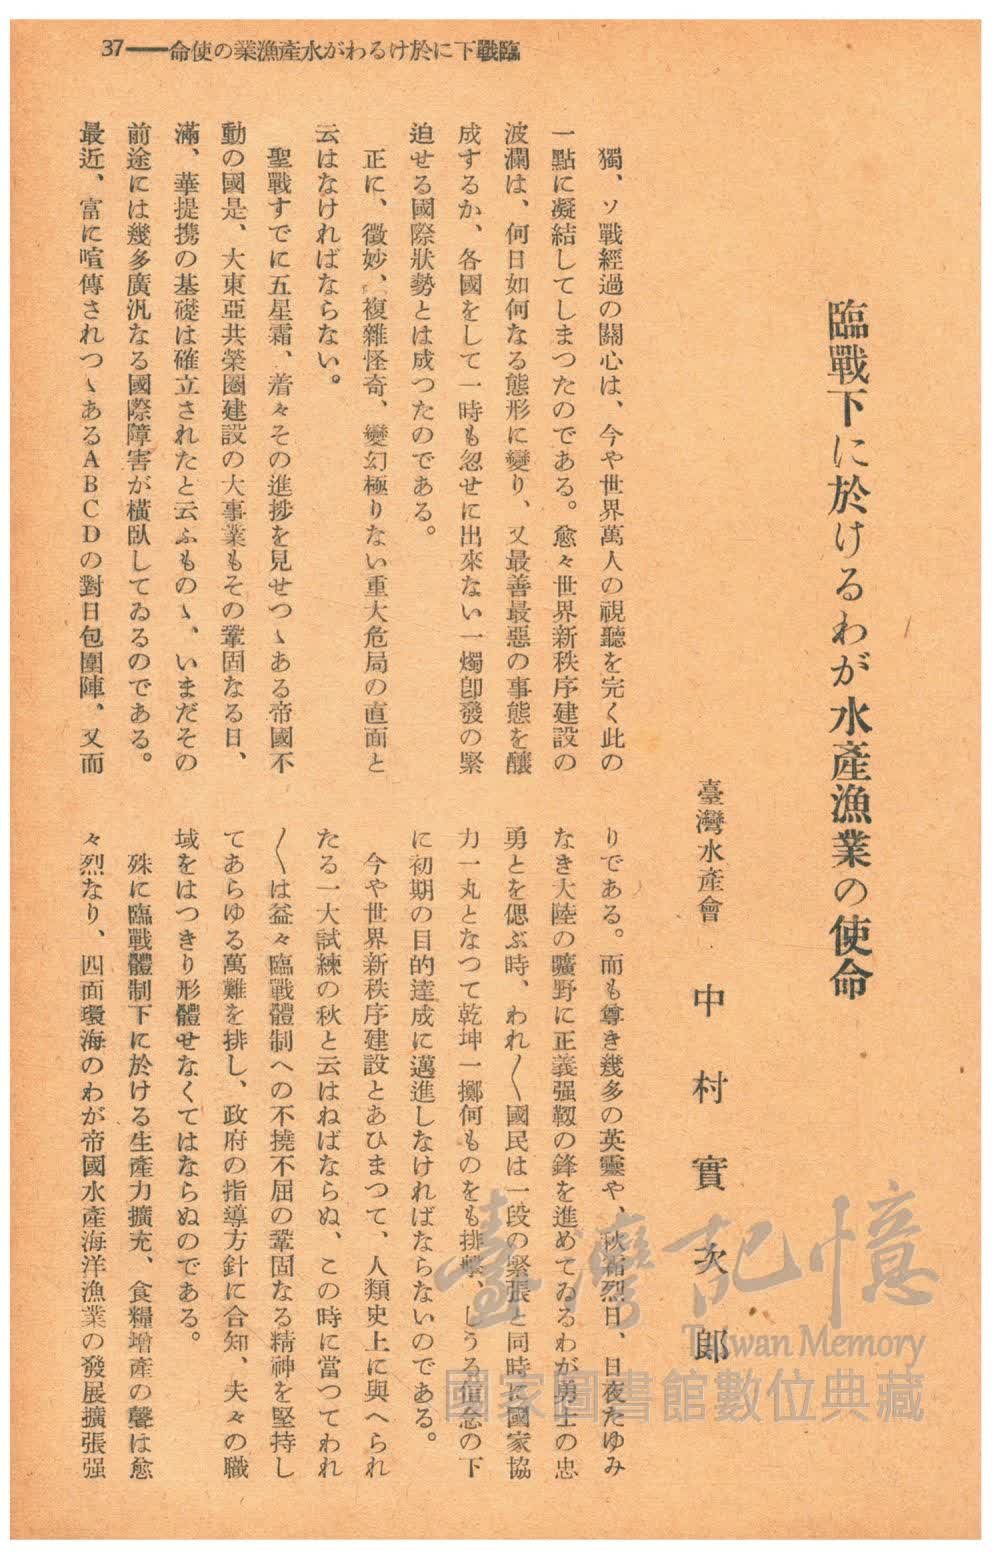 臨戰下に於けるわが水產漁業の使命——37
臨戰下に於けるわが水產漁業の使命
臺灣水產會 中村實次郎
獨、ソ戰經過の關心は、今や世界萬人の視聽を完く此の
一點に凝結してしまつたのである。愈々世界新秩序建設の
波瀾は、何日如何なる態形に變り、又最善最惡の事態を釀
成するか、各國をして一時も忽せに出來ない一燭卽發の緊
迫せる國際狀勢とは成つたのである。
正に、微妙、複雜怪奇、變幻極りない重大危局の直面と
云はなければならない。
聖戰すでに五星霜、着々その進捗を見せつゝある帝國不
動の國是、大東亞共榮圈建設の大事業もその鞏固なる日、
滿、華提携の基礎は確立されたと云ふものゝ、いまだその
前途には幾多廣汎なる國際障害が橫臥してゐるのである。
最近、富に喧傳されつゝあるABCDの對日包圍陣、又而
りである。而も尊き幾多の英靈や、秋霜烈日、日夜たゆみ
なき大陸の曠野に正義强靱の鋒を進めてゐるわが勇士の忠
勇とを偲ぶ時、われ〱國民は一段の緊張と同時に國家協
力一丸となつて乾坤一擲何ものをも排擊、しうる信念の下
に初期の目的達成に邁進しなければならないのである。
今や世界新秩序建設とあひまつて、人類史上に與へられ
たる一大試練の秋と云はねばならぬ、この時に當つてわれ
〱は益々臨戰體制への不撓不屈の鞏固なる精神を堅持し
てあらゆる萬難を排し、政府の指導方針に合知、夫々の職
域をはつきり形體せなくてはならぬのである。
殊に臨戰體制下に於ける生產力擴充、食糧增產の聲は愈
々烈なり、四面環海のわが帝國水產海洋漁業の發展擴張强
臺灣記憶
Taiwan Memory
國家圖書館數位典藏